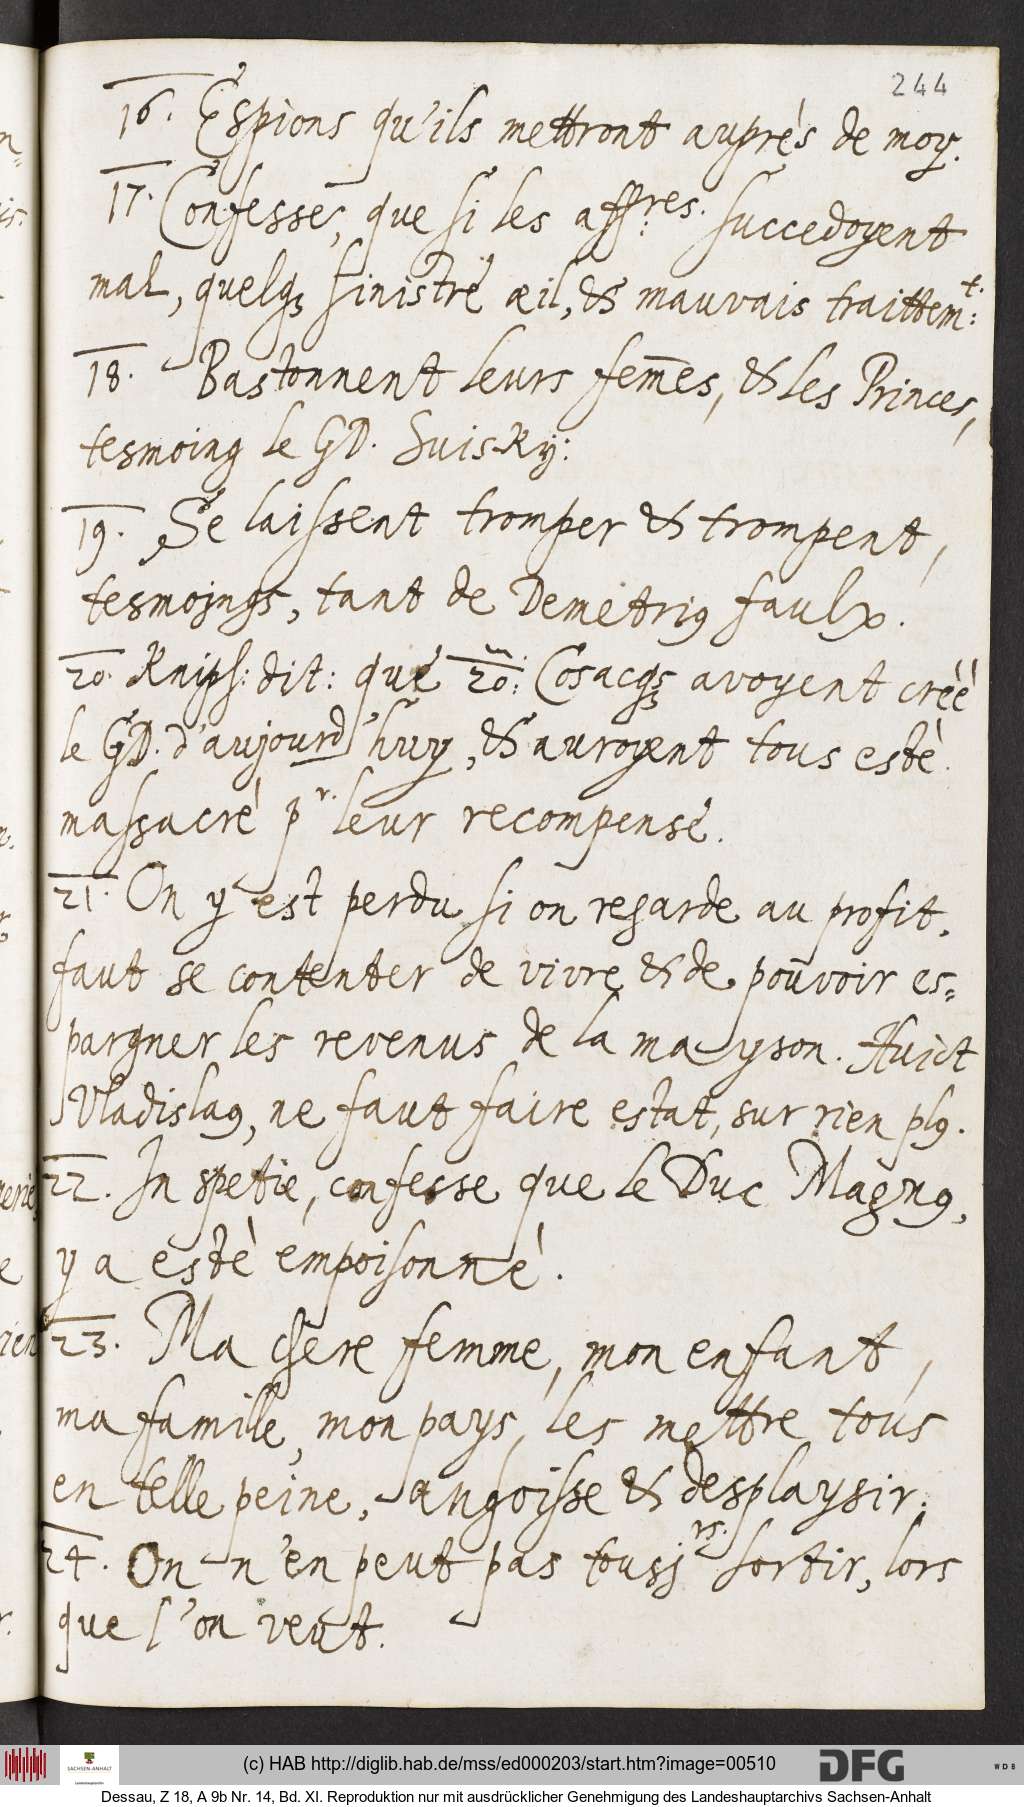 244
16. Espions qu'ils mettront auprés de moy.
17. Confesse, que si les aff:res. succedoyent
mal, quelqz sinistre œil, & mauvais traittem:t.
18. Bastonnent leurs fem̅es, & les Princes,
tesmoing le GD. Suisky:
19. Se laissent tromper & trompent,
tesmojngs, tant de Demetrig faulx.
20. Knips: dit: que 20: Cosacqz avoyent créé
le GD. d'aujourd'huy, & auroyent tous estè
massacré pr. leur recompense.
21. On y est perdu si on regarde au profit.
faut se contenter de vivre & de pouvoir es=
pargner les revenus de la mayson. Avict
Vladislag, ne faut faire estat, sur rien plg.
22. In spetie, confesse que le Duc Magng,
y a estè empoisonné.
23. Ma chere femme, mon enfant,
ma famille, mon pays, les mettre tous
en telle peine, angoisse & desplaysir.
24. On n'en peut pas tousjrs. sortir, lors
que l'on veut.
(c) HAB http://diglib.hab.de/mss/ed000203/start.htm?image=00510
SACHSEN-ANHALT
DFG
WDB
Dessau, Z 18, A 9b Nr. 14, Bd. XI. Reproduktion nur mit ausdrücklicher Genehmigung des Landeshauptarchivs Sachsen-Anhalt